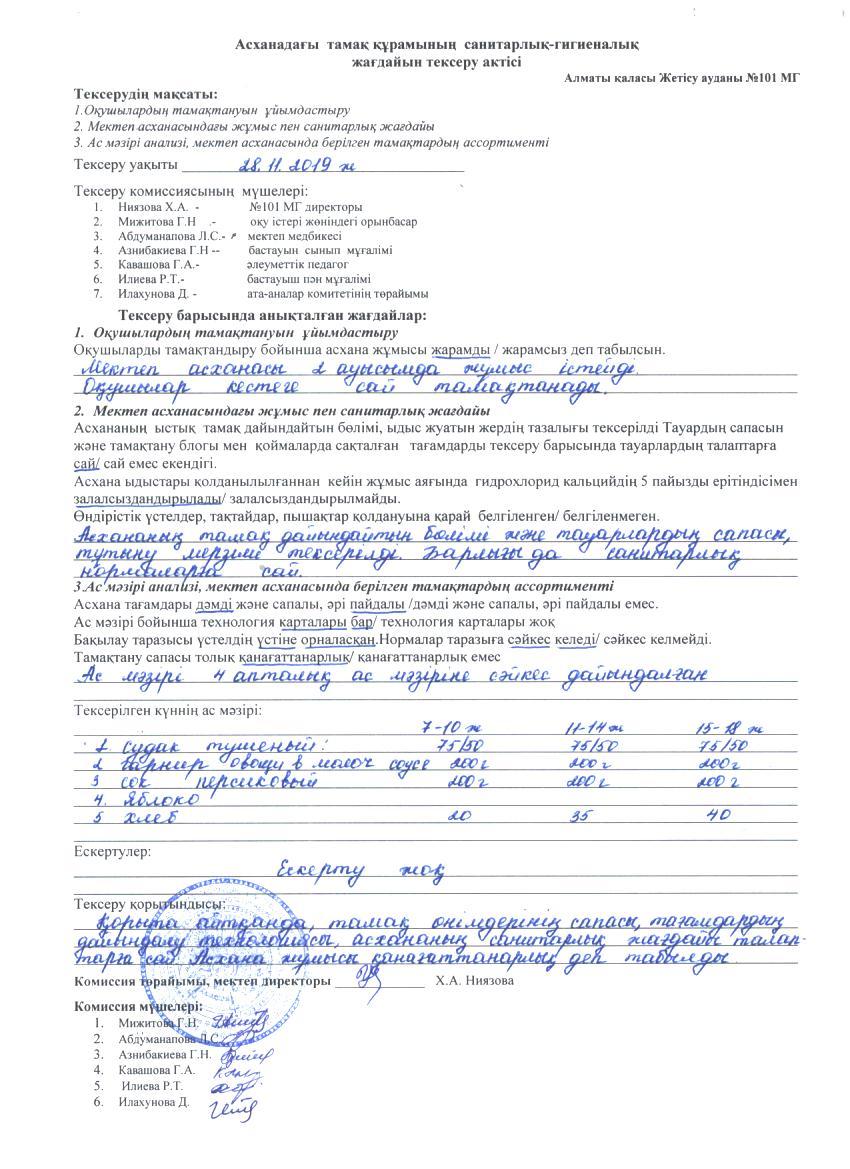 Асханадағы тамақ құрамының санитарлық-гигиеналық
жағдайын тексеру актісі
Алматы қаласы Жетісу ауданы №101 МГ
Тексерудің мақсаты:
1.Оқушылардың тамақтануын ұйымдастыру
2. Мектеп асханасындағы жұмыс пен санитарлық жағдайы
3. Ас мәзірі анализі, мектеп асханасында берілген тамақтардың ассортименті
Тексеру уақыты 28.11.2019 ж
Тексеру комиссиясының мүшелері:
1. Ниязова Х.А. - №101 МГ директоры
2. Мижитова Г.Н .- оқу істері жөніндегі орынбасар
3. Абдуманапова Л.С.- мектеп медбикесі
4. Азнибакиева Г.Н -- бастауын сынып мұғалімі
5. Кавашова Г.А.- әлеуметтік педагог
6. Илиева Р.Т.- бастауыш пән мұғалімі
7. Илахунова Д. - ата-аналар комитетінің төрайымы
Тексеру барысында анықталған жағдайлар:
1. Оқушылардың тамақтануын ұйымдастыру
Оқушыларды тамақтандыру бойынша асхана жұмысы жарамды / жарамсыз деп табылсын.
Мектеп асханасы 2 ауысымда жұмыс істейді.
Оқушылар кестеге сай тамақтанады.
2. Мектеп асханасындағы жұмыс пен санитарлық жағдайы
Асхананың ыстық тамақ дайындайтын бөлімі, ыдыс жуатын жердің тазалығы тексерілді Тауардың сапасын
және тамақтану блогы мен қоймаларда сақталған тағамдарды тексеру барысында тауарлардың талаптарға
сай/ сай емес екендігі.
Асхана ыдыстары қолданылылғаннан кейін жұмыс аяғында гидрохлорид кальцийдің 5 пайызды ерітіндісімен
залалсыздандырылады/ залалсыздандырылмайды.
Өндірістік үстелдер, тақтайдар, пышақтар қолдануына қарай белгіленген/ белгіленмеген.
Асхананың тамақ дайындайтын бөлімі және тауарлардың сапасы,
тұтыну мерзімі тексерілді. Барлығы да санитарлық
нормаларға сай.
3.Ас мәзірі анализі, мектеп асханасында берілген тамақтардың ассортименті
Асхана тағамдары дәмді және сапалы, әрі пайдалы /дәмді және сапалы, әрі пайдалы емес.
Ас мәзірі бойынша технология карталары бар/ технология карталары жоқ
Бақылау таразысы үстелдің үстіне орналасқан.Нормалар таразыға сәйкес келеді/ сәйкес келмейді.
Тамақтану сапасы толық қанағаттанарлық/ қанағаттанарлық емес
Ас мәзірі 4 апталық ас мәзіріне сәйкес дайындалған
Тексерілген күннің ас мәзірі:
7-10 ж 11-14 ж 15-18 ж
1 судак тушеный: 75/50 75/50 75/50
2 гарнир овощи в молоч соусе 200г 200г 200г
3 сок персиковый 200г 200г 200г
4. Яблоко
5 хлеб 20 35 40
Ескертулер:
Ескерту жоқ
Тексеру қорытындысы:
Қорыта айтқанда, тамақ өнімдерінің сапасы, тағамдардың
дайындалу технологиясы, асхананың санитарлық жағдайы талап-
тарға сай. Асхана жұмысы қанағаттанарлық деп табылды
Комиссия төрайымы, мектеп директоры Х.А. Ниязова
Комиссия мүшелері:
1. Мижитова Г.Н.
2. Абдуманапова Л.С
3. Азнибакиева Г.Н.
4. Кавашова Г.А.
5. Илиева Р.Т.
6. Илахунова Д.